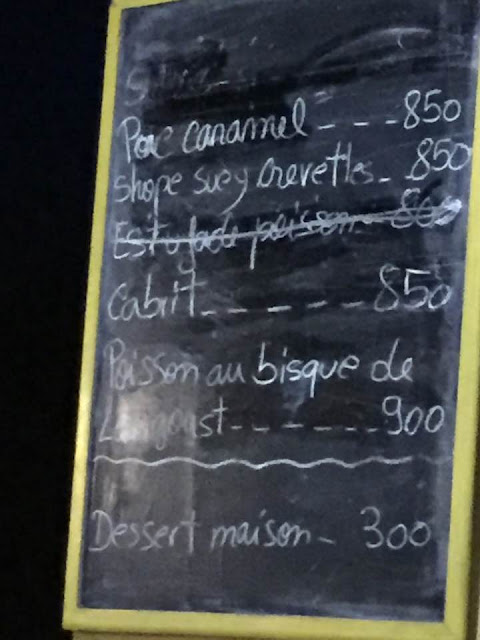 Porc caramel - - - 850
Shope suey crevettes - 850
Estofade poisson - 800
Cabrit - - - - - - - 850
Poisson au bisque de
Langoust - - - - - - 900
Dessert maison - 300